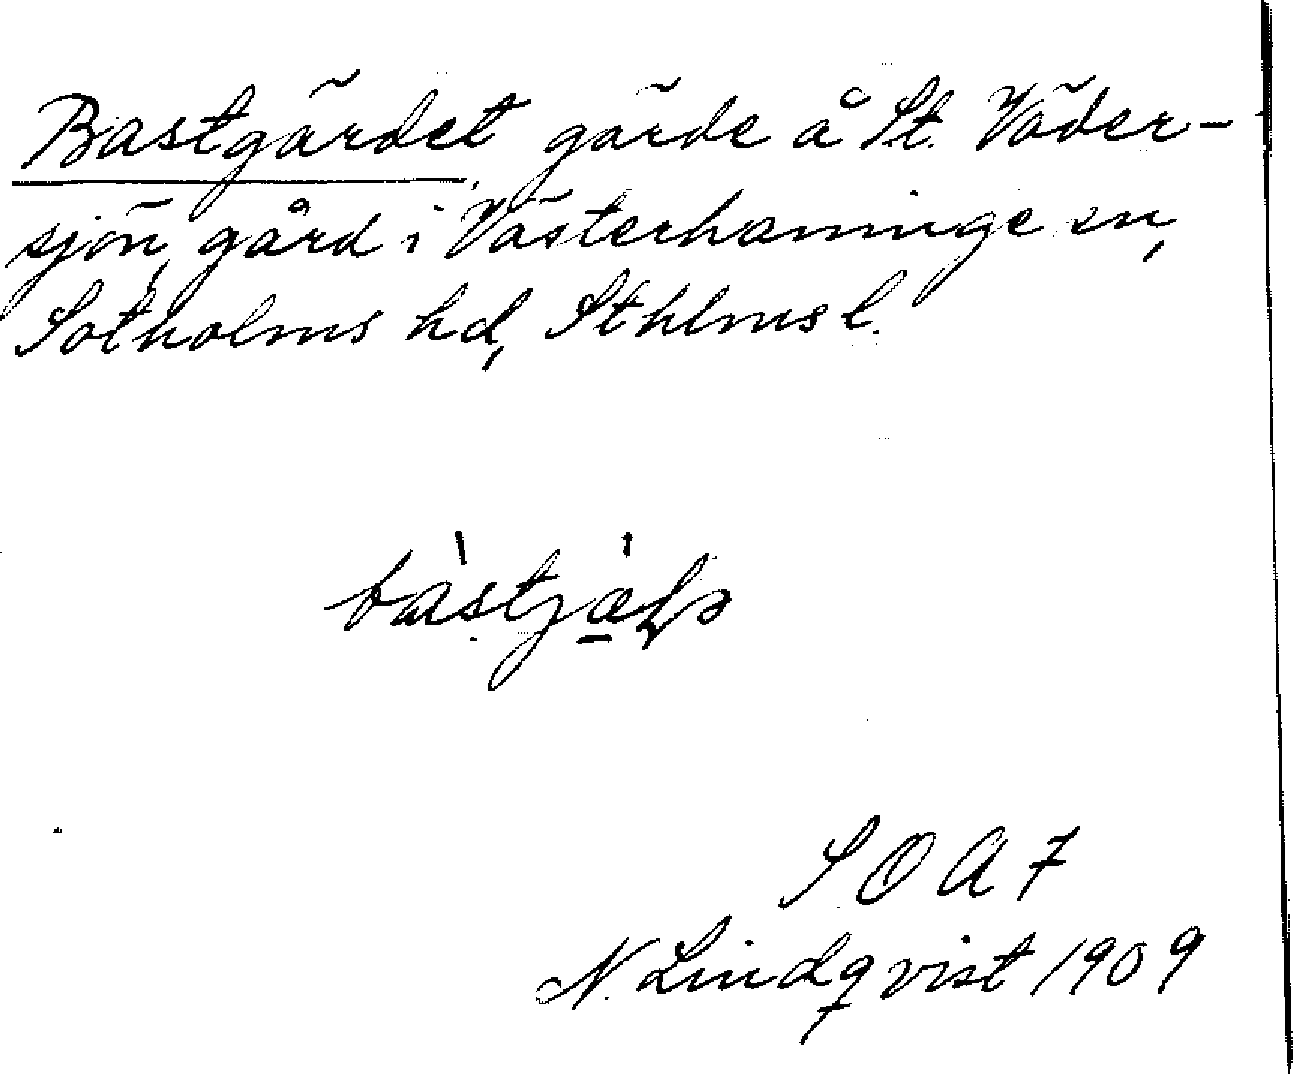 Bastgärdet, gärde å St. Väder-
sjön, gård i Västerhaninge sn,
Sotholms hd, Sthlms l.
S O A 7
N. Lindqvist 1909